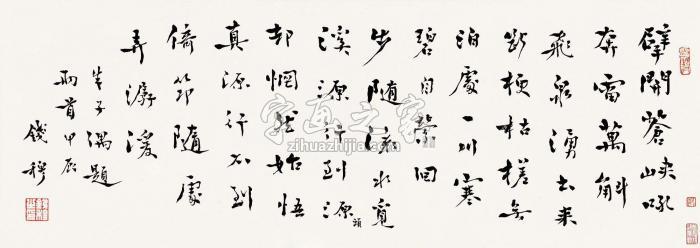 擘開蒼峽吼
奔雷萬斛
飛泉湧出来
斷梗枯槎無
泊處一川寒
碧自縈回
步随流水覓
溪源行到源頭
却惘然始悟
真源行不到
倚筇隨處
弄潺湲
朱子偶題
兩首甲辰
錢穆
字画之家
zihuazhijia.com